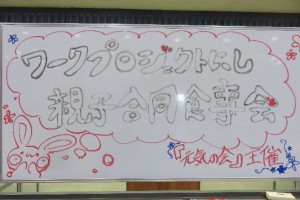 ワークプロジェクトにし
親子合同食事会
『元気の会』主催